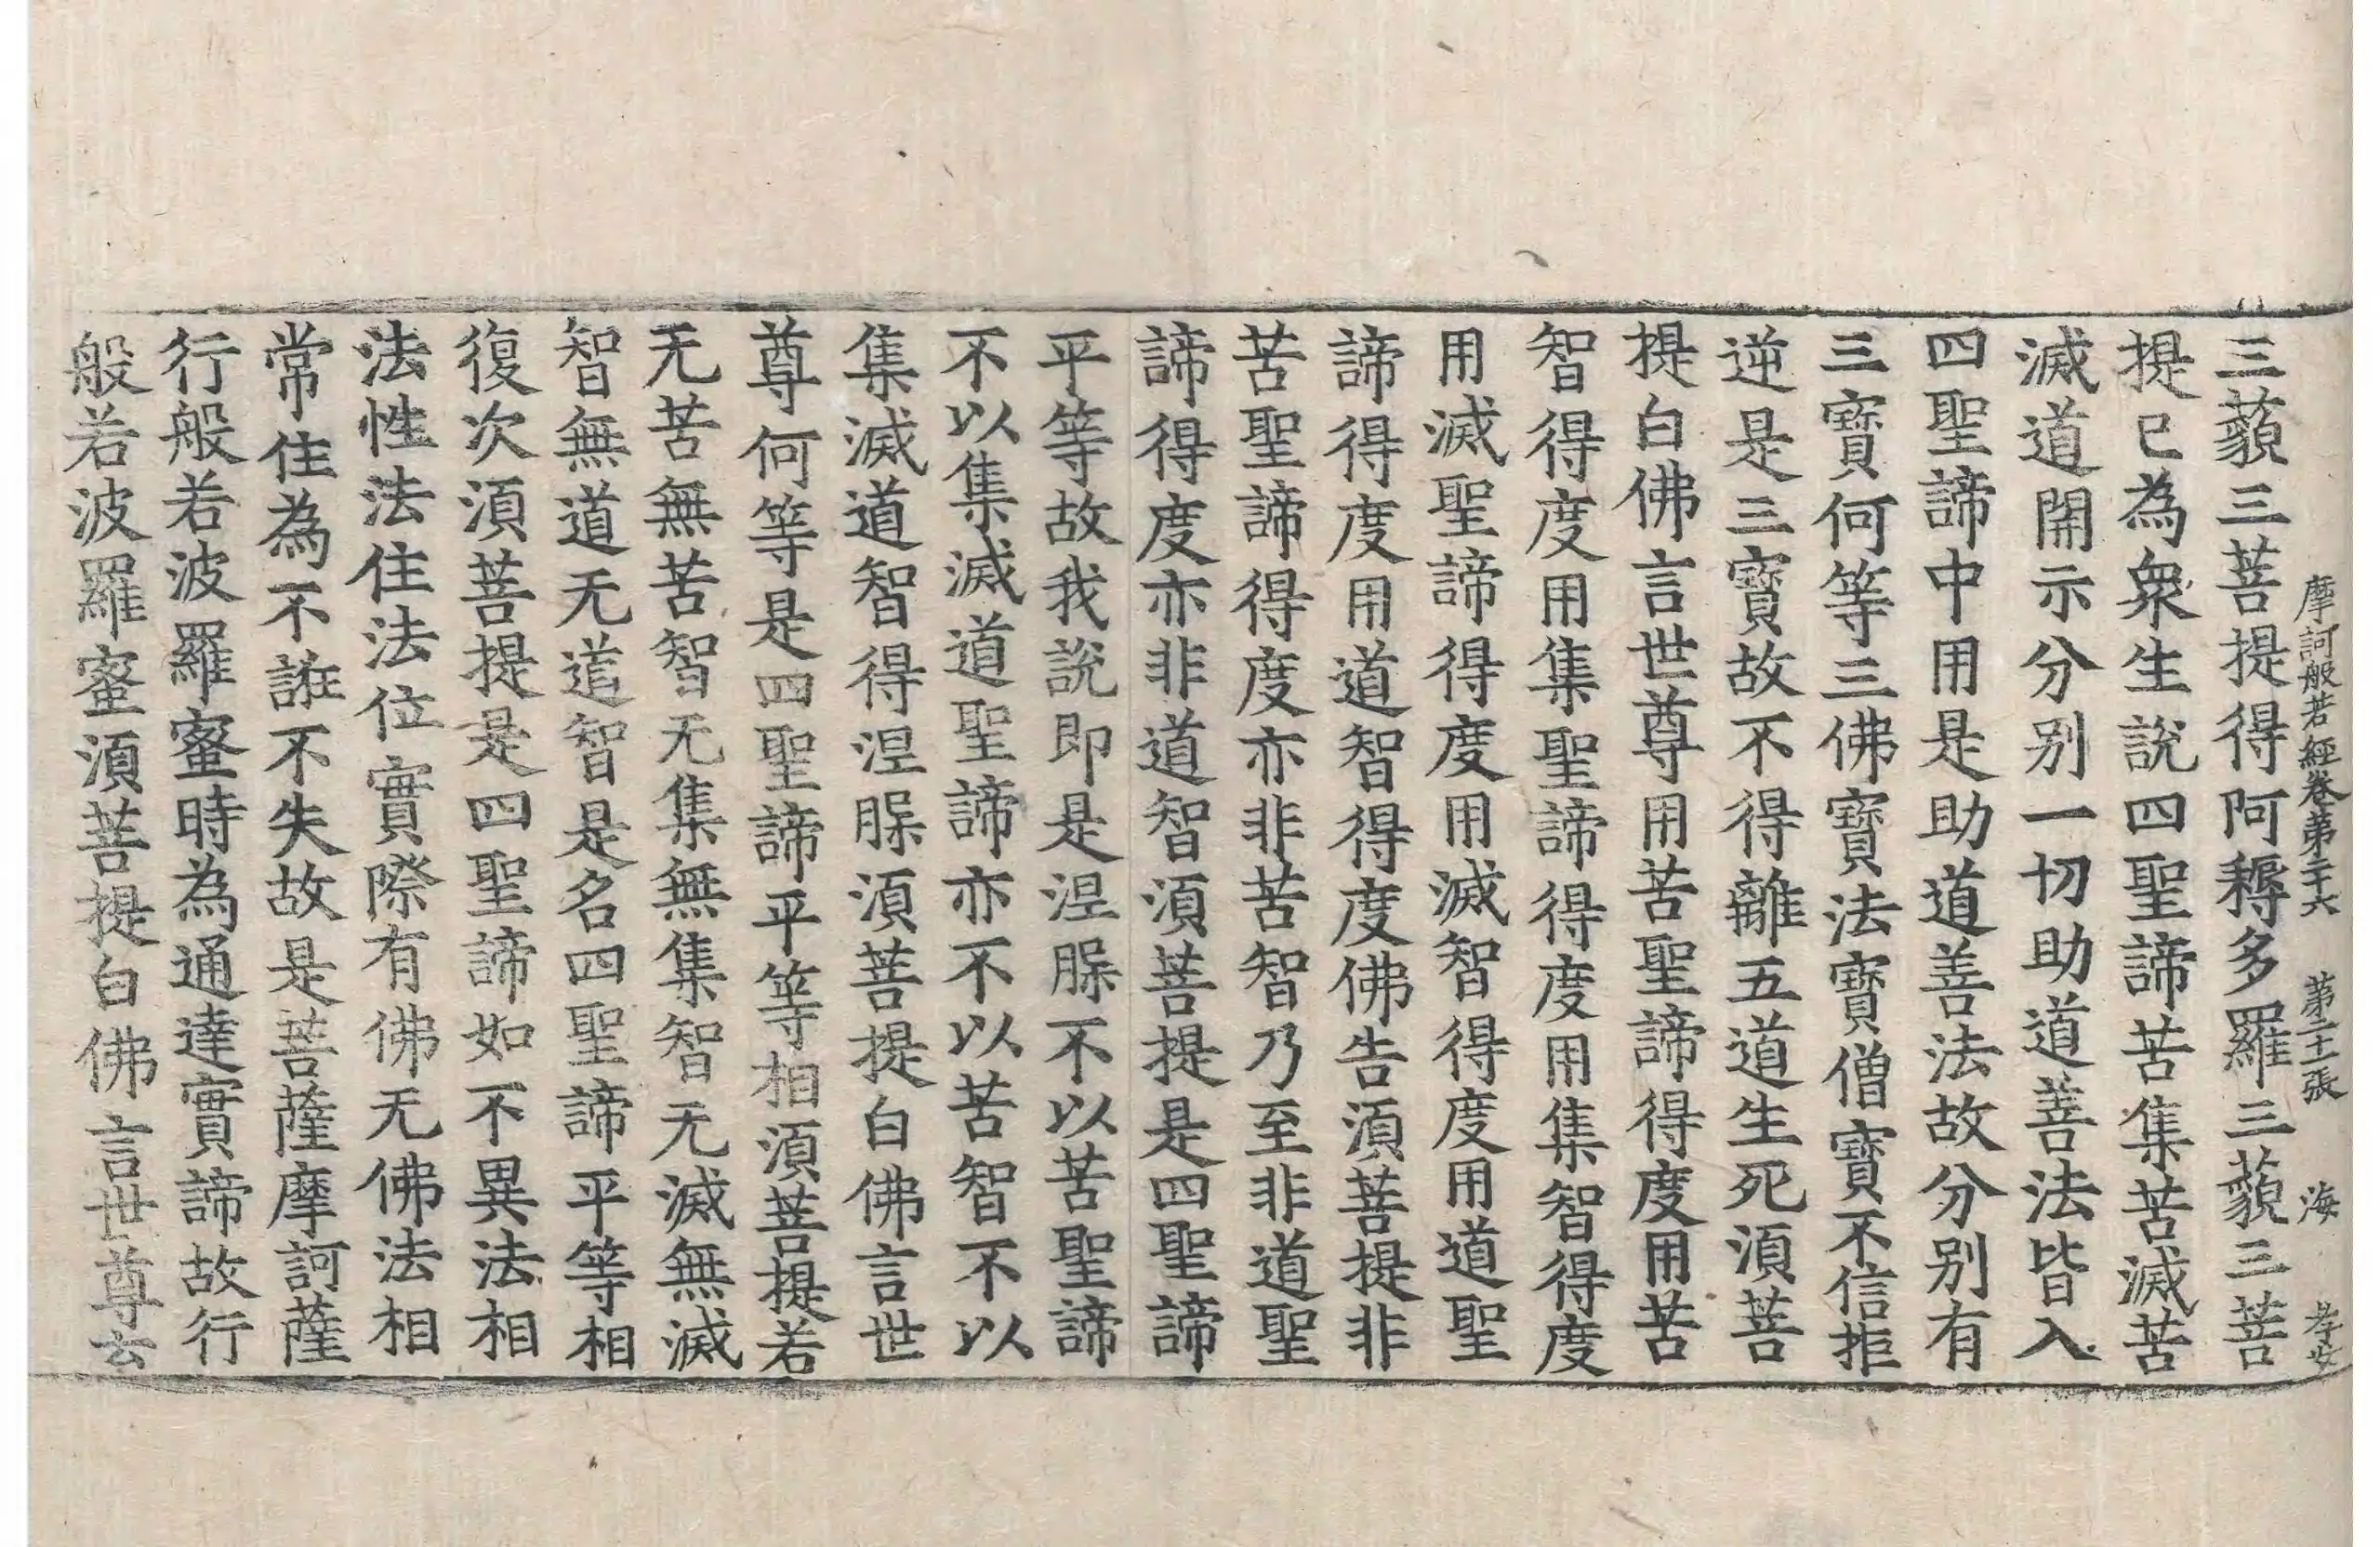 摩訶般若經卷第二十六 第二十一張 海 孝女
三藐三菩提得阿耨多羅三藐三菩
提已為衆生說四聖諦苦集苦滅苦
滅道開示分別一切助道善法皆入
四聖諦中用是助道善法故分別有
三寶何等三佛寶法寶僧寶不信拒
逆是三寶故不得離五道生死須菩
提白佛言世尊用苦聖諦得度用苦
智得度用集聖諦得度用集智得度
用滅聖諦得度用滅智得度用道聖
諦得度用道智得度佛告須菩提非
苦聖諦得度亦非苦智乃至非道聖
諦得度亦非道智須菩提是四聖諦
平等故我說即是涅槃不以苦聖諦
不以集滅道聖諦亦不以苦智不以
集滅道智得涅槃須菩提白佛言世
尊何等是四聖諦平等相須菩提若
无苦無苦智无集無集智无滅無滅
智無道无道智是名四聖諦平等相
復次須菩提是四聖諦如不異法相
法性法住法位實際有佛无佛法相
常住為不誑不失故是菩薩摩訶薩
行般若波羅蜜時為通達實諦故行
般若波羅蜜須菩提白佛言世尊云